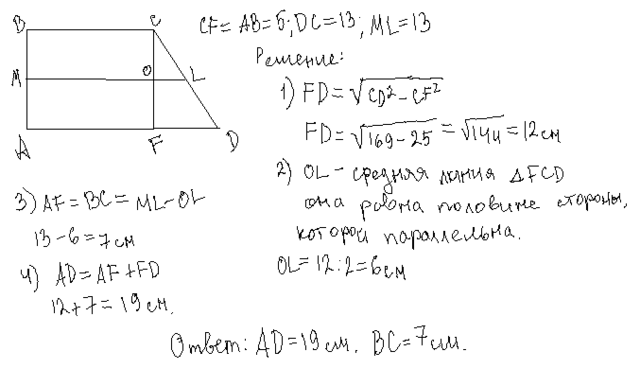 B C
M O L
A F D
CF = AB = 5; DC = 13; ML = 13
Решение:
1) FD = √CD² - CF²
FD = √169 - 25 = √144 = 12 см
2) OL - средняя линия △FCD
она равна половине стороны,
которой параллельна.
OL = 12 : 2 = 6 см
3) AF = BC = ML - OL
13 - 6 = 7 см
4) AD = AF + FD
12 + 7 = 19 см.
Ответ: AD = 19 см. BC = 7 см.